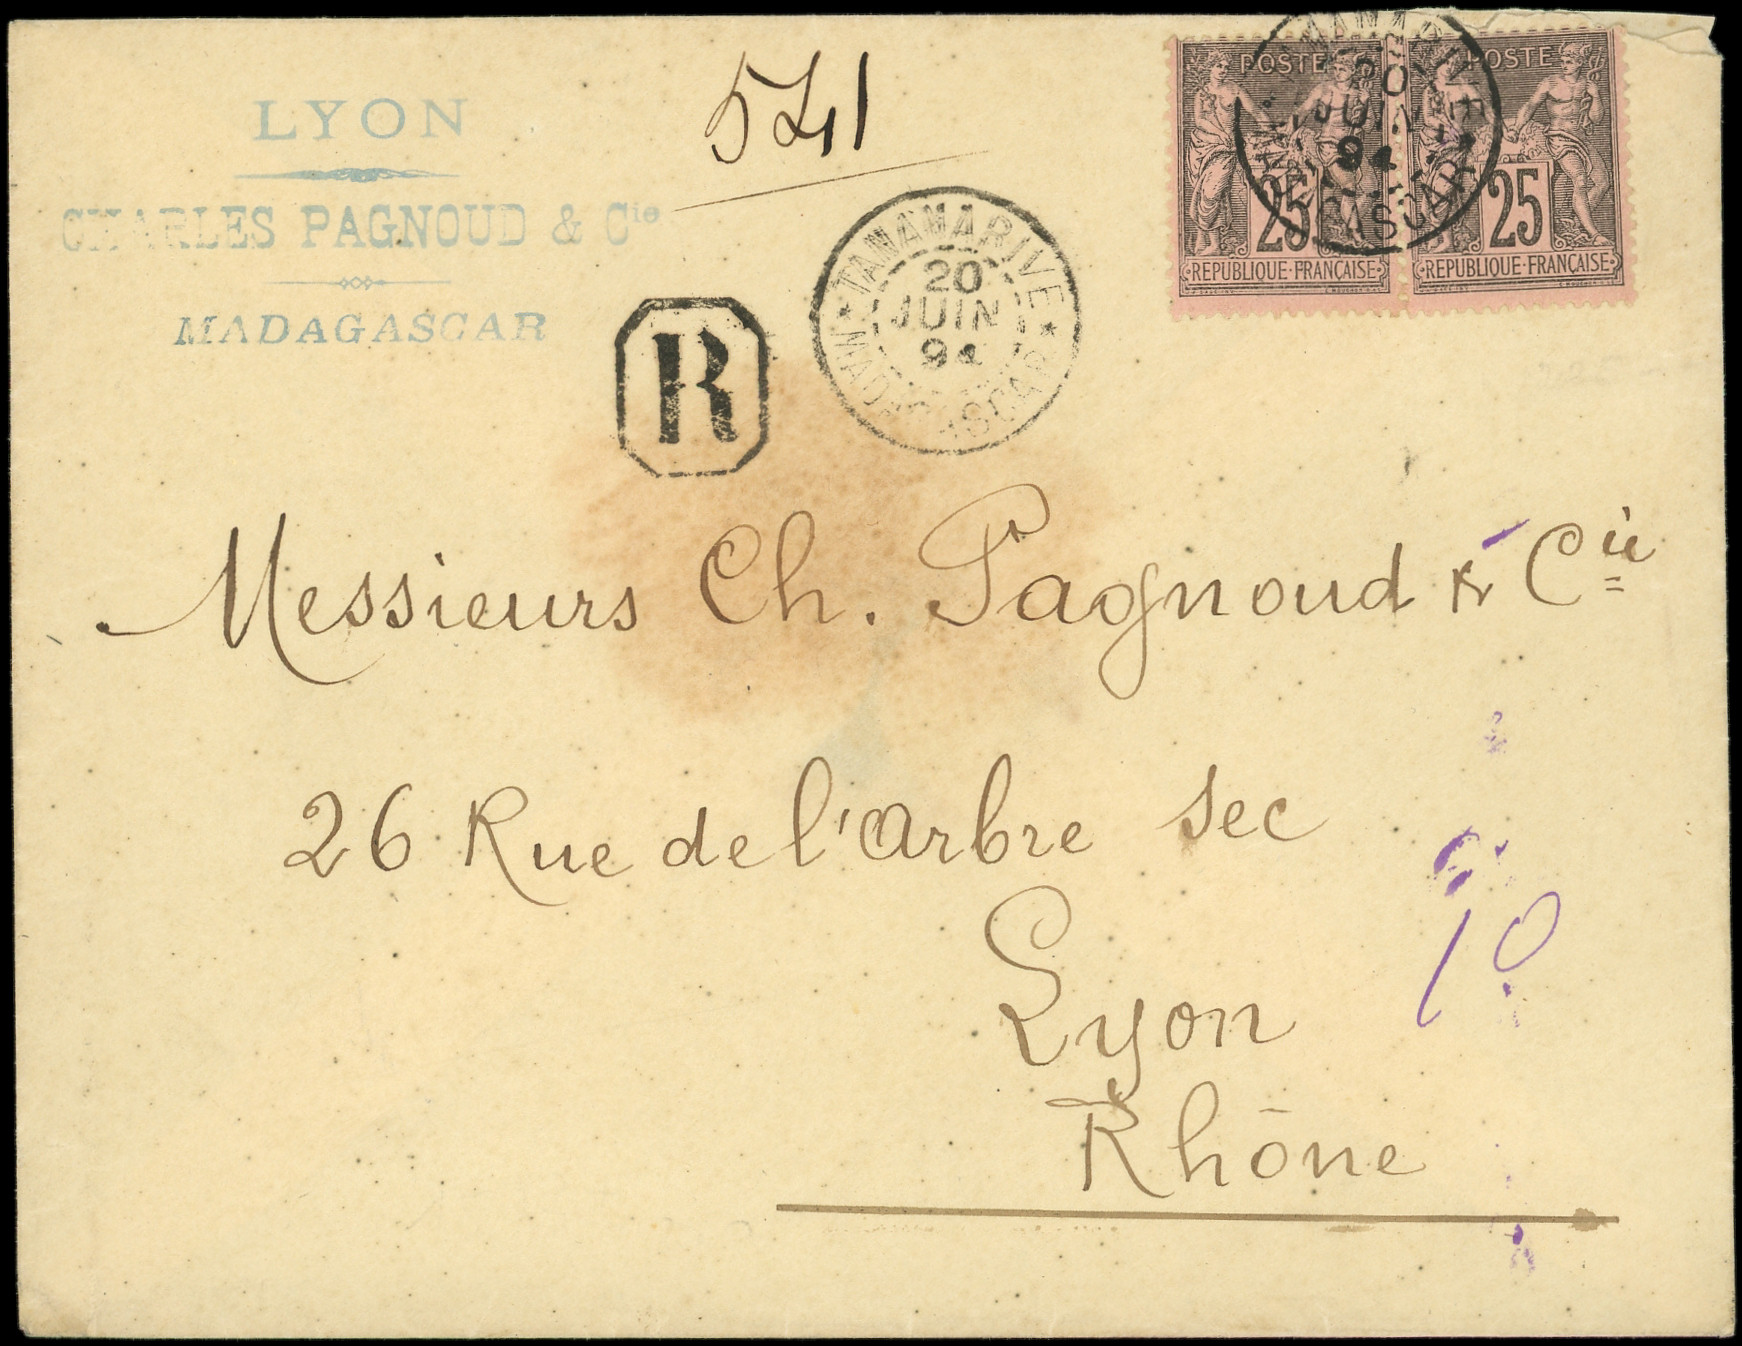 LYON
CHARLES PAGNOUD & Cie
MADAGASCAR
541
R
TANANARIVE
20
JUIN
94
MADAGASCAR
POSTE
25
REPUBLIQUE FRANÇAISE
POSTE
25
REPUBLIQUE FRANÇAISE
TANANARIVE
20
JUIN
94
MADAGASCAR
Messieurs Ch. Pagnoud & Cie
26 Rue de l'Arbre Sec
Lyon
Rhône